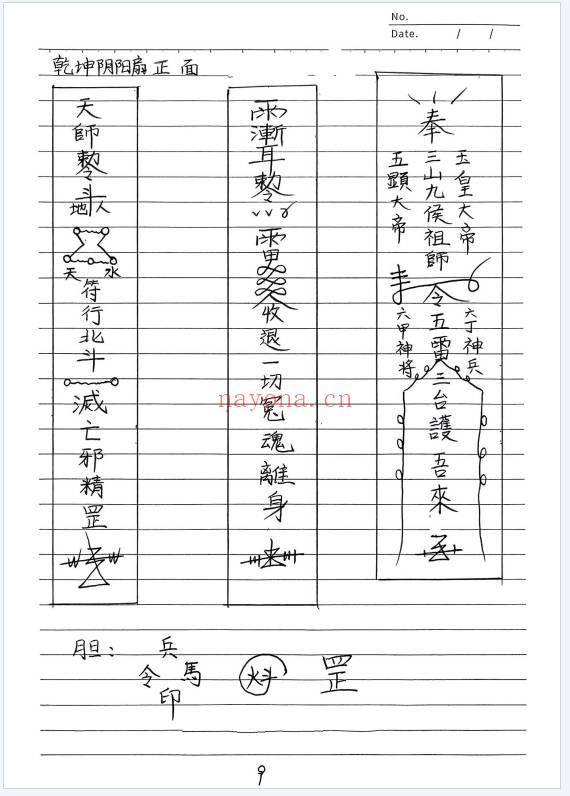 No.
Date. / /
乾坤阴阳扇正面
奉
玉皇大帝
三山九侯祖師
五顯大帝
令
六丁神兵
五雷
六甲神将
三台護吾來
雨漸耳
敕令
雷
收退一切冤魂離身
天師敕令
斗
地 人
天 水
符行北斗
滅亡邪精罡
胆：
兵
令 馬
印
罡
nayona.cn
9